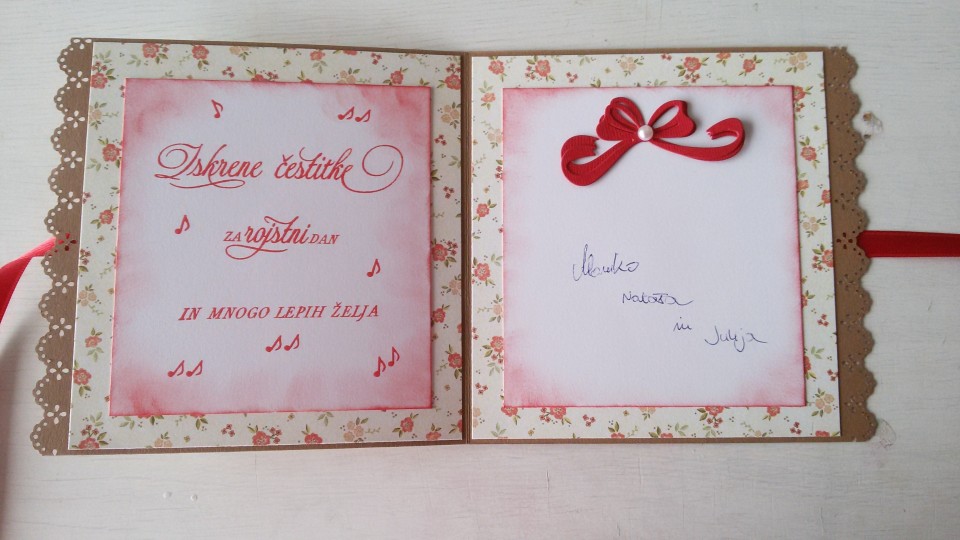 Iskrene čestitke
ZA rojstni DAN
IN MNOGO LEPIH ŽELJA
Marko
Nataša
in
Julija